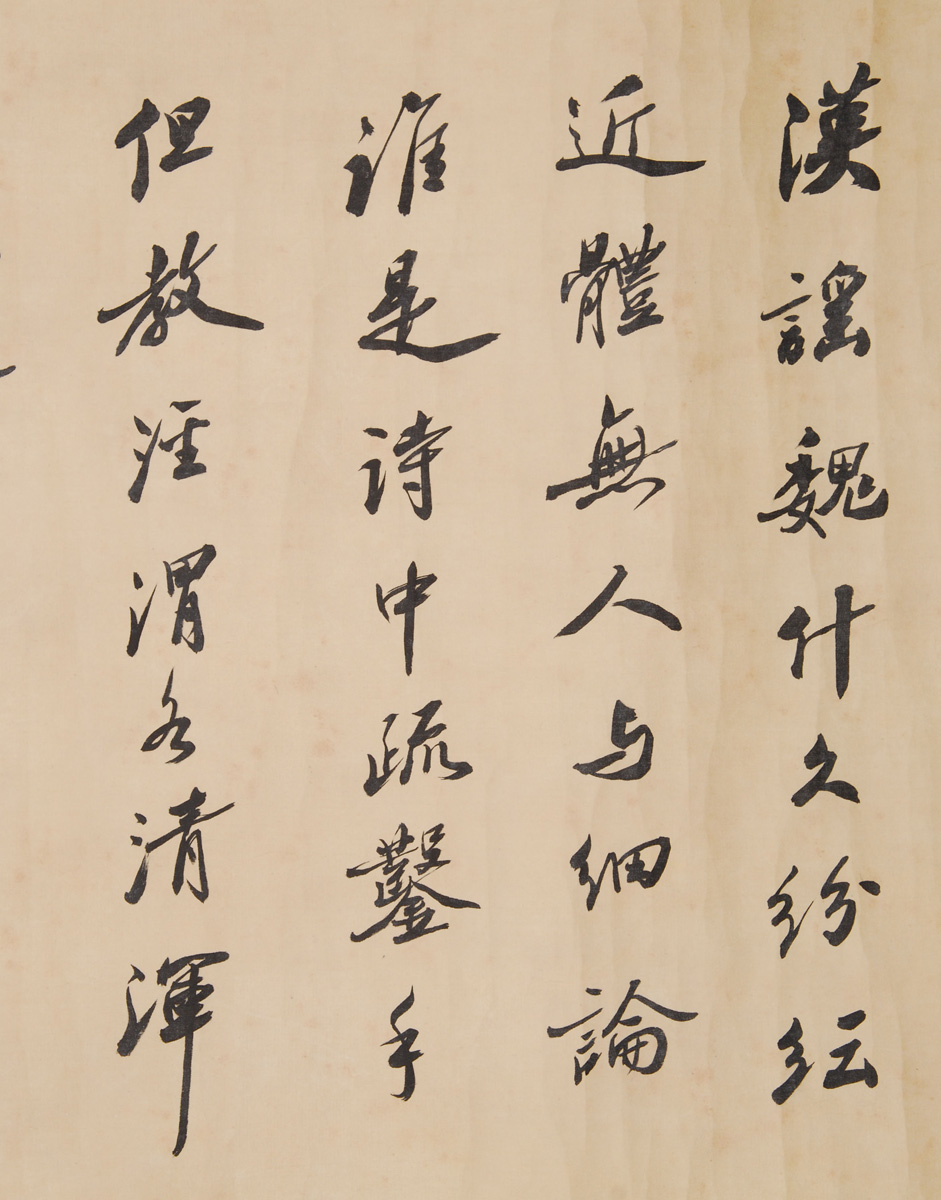 漢謠魏什久紛紜
近體無人与細論
誰是詩中疏鑿手
但教涇渭各清渾